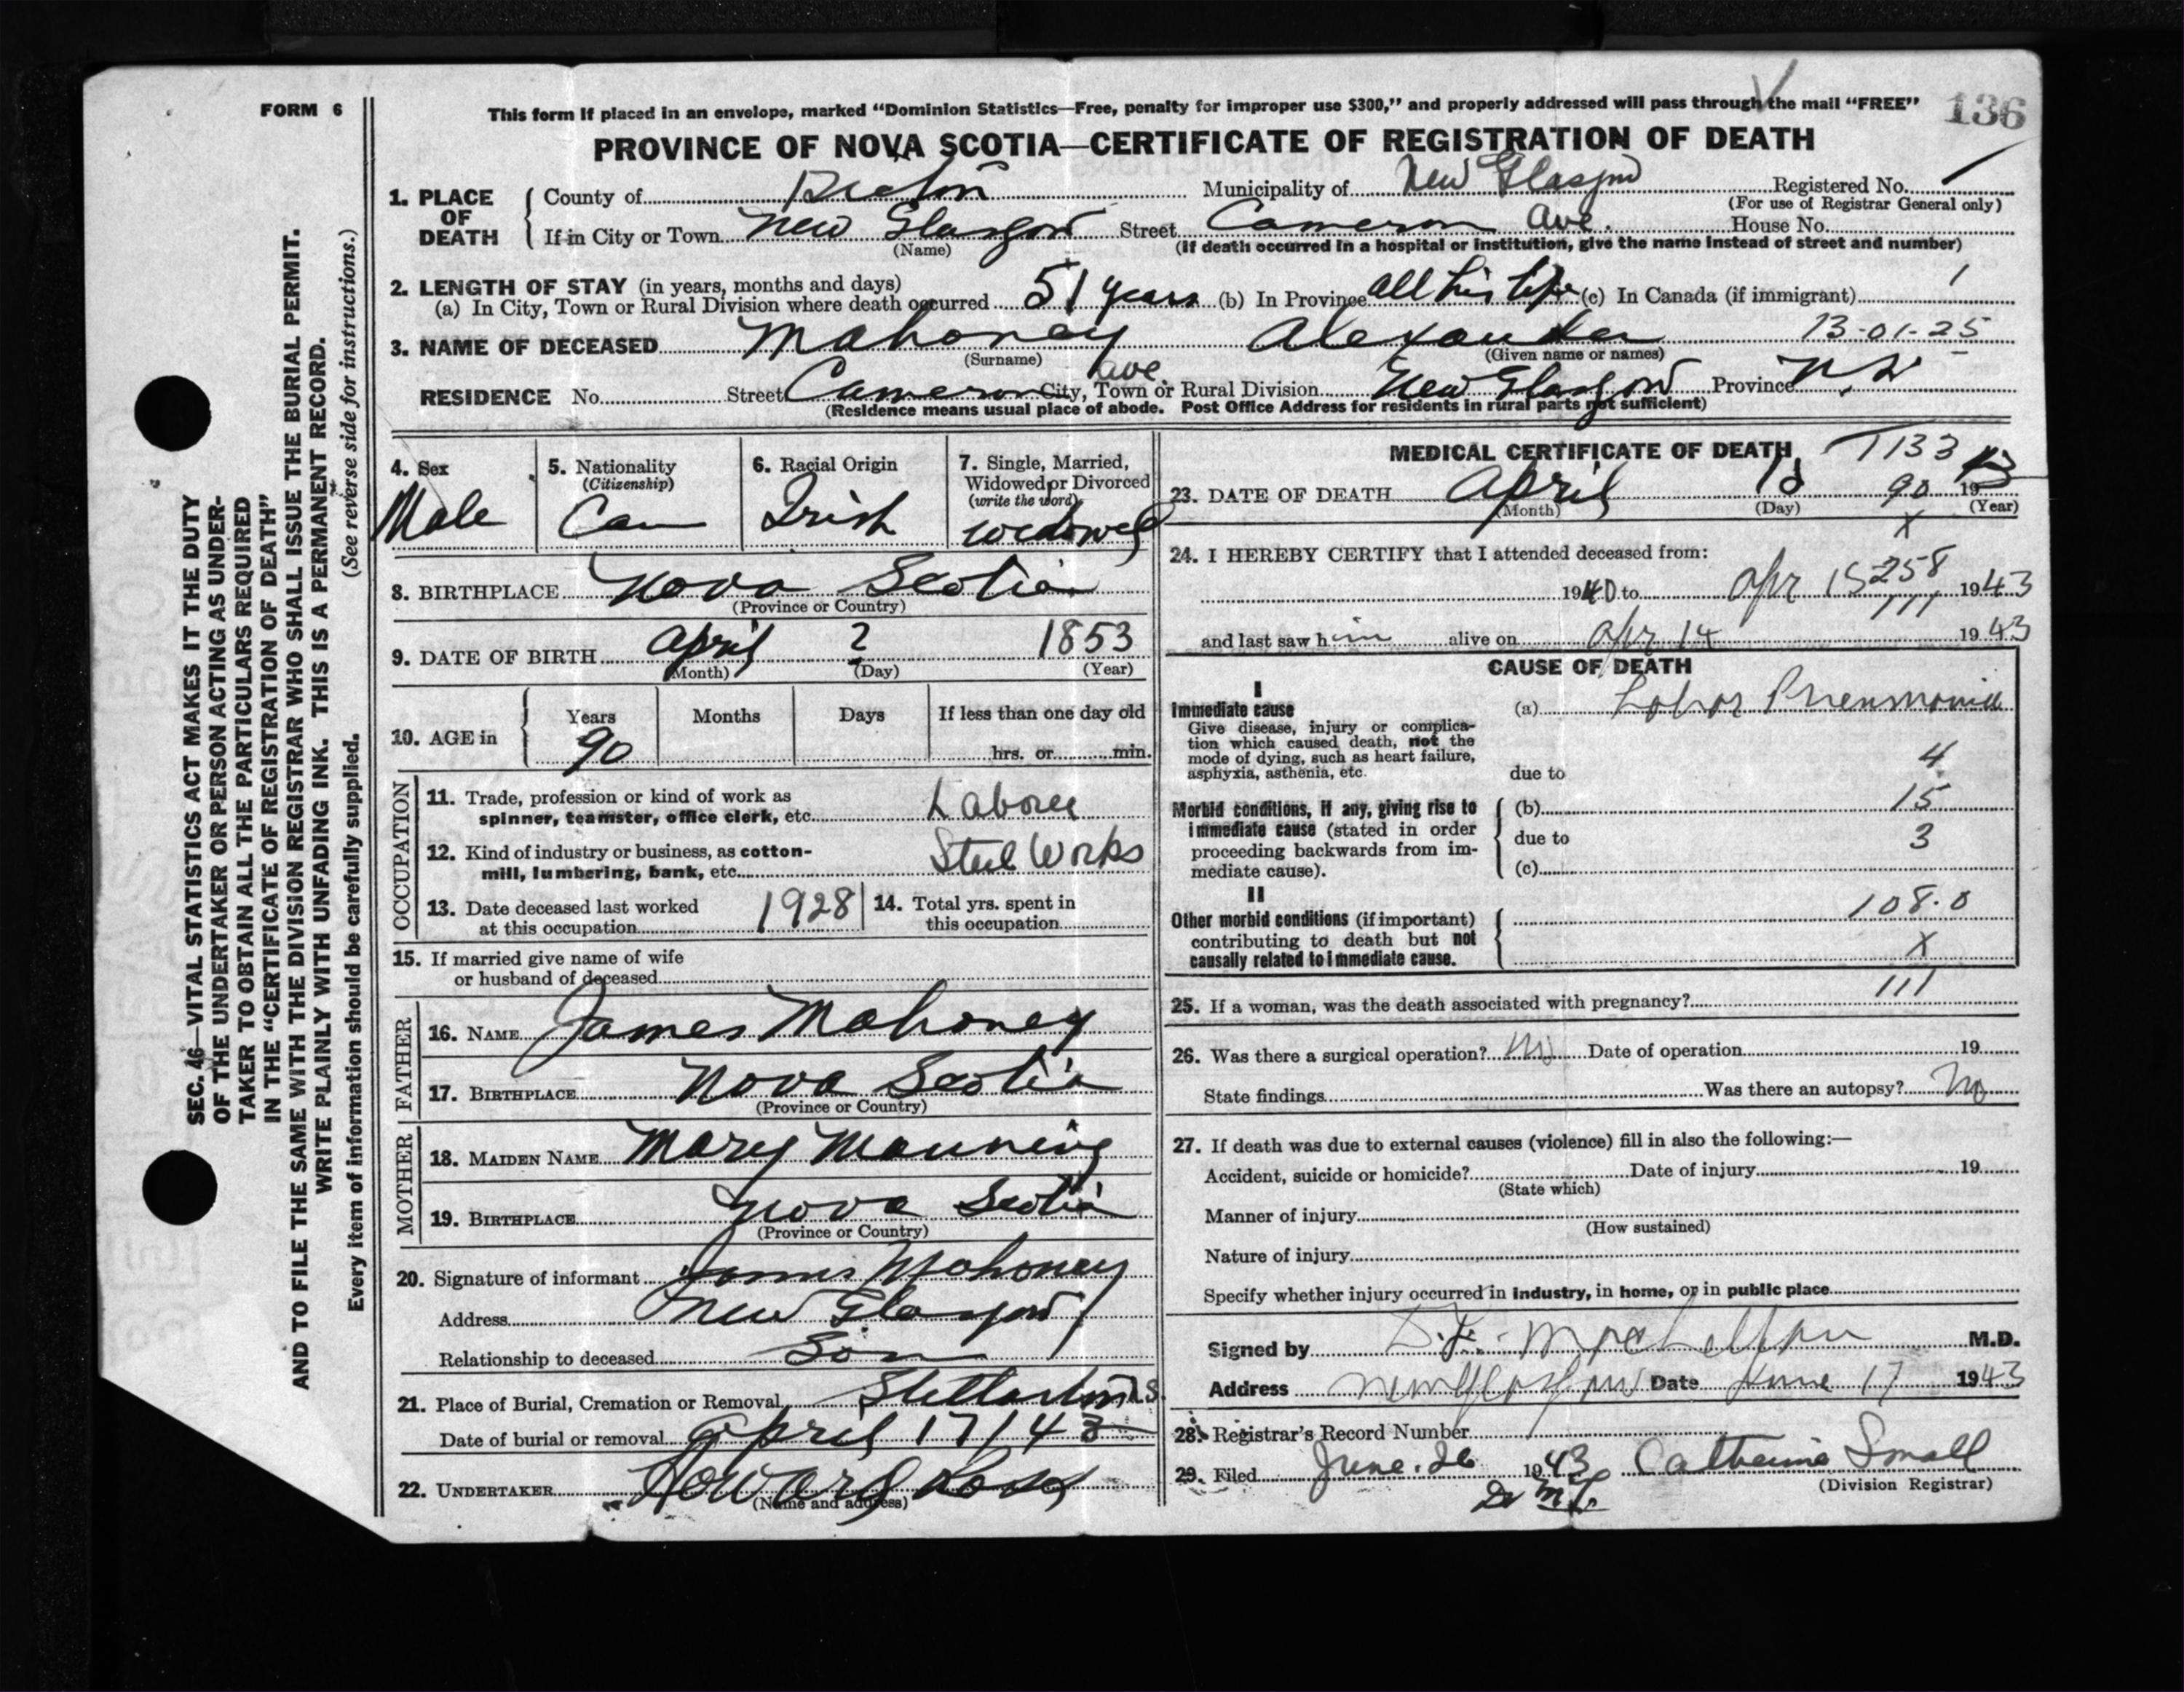 FORM 6
This form if placed in an envelope, marked “Dominion Statistics—Free, penalty for improper use $300,” and properly addressed will pass through the mail “FREE”
136
PROVINCE OF NOVA SCOTIA—CERTIFICATE OF REGISTRATION OF DEATH
1. PLACE OF DEATH
County of Pictou Municipality of New Glasgow Registered No.
(For use of Registrar General only)
If in City or Town New Glasgow Street Cameron Ave. House No.
(Name) (If death occurred in a hospital or institution, give the name instead of street and number)
2. LENGTH OF STAY (in years, months and days)
(a) In City, Town or Rural Division where death occurred 51 years (b) In Province all his life (c) In Canada (if immigrant)
3. NAME OF DECEASED Mahoney Alexander 13-01-25
(Surname) (Given name or names)
RESIDENCE No. Street Cameron Ave. City, Town or Rural Division New Glasgow Province N.S.
(Residence means usual place of abode. Post Office Address for residents in rural parts not sufficient)
4. Sex Male
5. Nationality (Citizenship) Can
6. Racial Origin Irish
7. Single, Married, Widowed or Divorced (write the word) widowed
8. BIRTHPLACE Nova Scotia
(Province or Country)
9. DATE OF BIRTH April 2 1853
(Month) (Day) (Year)
10. AGE in Years 90 Months Days If less than one day old
hrs. or min.
OCCUPATION
11. Trade, profession or kind of work as
spinner, teamster, office clerk, etc. Laborer
12. Kind of industry or business, as cotton-
mill, lumbering, bank, etc. Steel Works
13. Date deceased last worked
at this occupation 1928
14. Total yrs. spent in
this occupation
15. If married give name of wife
or husband of deceased
FATHER
16. NAME James Mahoney
17. BIRTHPLACE Nova Scotia
(Province or Country)
MOTHER
18. MAIDEN NAME Mary Manning
19. BIRTHPLACE Nova Scotia
(Province or Country)
20. Signature of informant James Mahoney
Address New Glasgow
Relationship to deceased Son
21. Place of Burial, Cremation or Removal Stellarton N.S.
Date of burial or removal April 17/43
22. UNDERTAKER Howard Ross
(Name and address)
MEDICAL CERTIFICATE OF DEATH 1133
23. DATE OF DEATH April 15 90 1943
(Month) (Day) (Year)
X
24. I HEREBY CERTIFY that I attended deceased from:
1940 to Apr 15 258 1943
111
and last saw him alive on Apr 14 1943
CAUSE OF DEATH
I
Immediate cause
Give disease, injury or complica-
tion which caused death, not the
mode of dying, such as heart failure,
asphyxia, asthenia, etc.
(a) Lobar Pneumonia
4
due to
Morbid conditions, if any, giving rise to
immediate cause (stated in order
proceeding backwards from im-
mediate cause).
(b) 15
due to 3
(c)
II
Other morbid conditions (if important)
contributing to death but not
causally related to immediate cause.
108.0
X
111
25. If a woman, was the death associated with pregnancy?
26. Was there a surgical operation? No Date of operation 19
State findings Was there an autopsy? No
27. If death was due to external causes (violence) fill in also the following:—
Accident, suicide or homicide? Date of injury 19
(State which)
Manner of injury
(How sustained)
Nature of injury
Specify whether injury occurred in industry, in home, or in public place
Signed by M.D.
Address New Glasgow Date June 17 1943
28. Registrar's Record Number
29. Filed June 26 1943 Catherine Small
(Division Registrar)
SEC. 46—VITAL STATISTICS ACT MAKES IT THE DUTY
OF THE UNDERTAKER OR PERSON ACTING AS UNDER-
TAKER TO OBTAIN ALL THE PARTICULARS REQUIRED
IN THE “CERTIFICATE OF REGISTRATION OF DEATH”
AND TO FILE THE SAME WITH THE DIVISION REGISTRAR WHO SHALL ISSUE THE BURIAL PERMIT.
WRITE PLAINLY WITH UNFADING INK. THIS IS A PERMANENT RECORD.
(See reverse side for instructions.)
Every item of information should be carefully supplied.